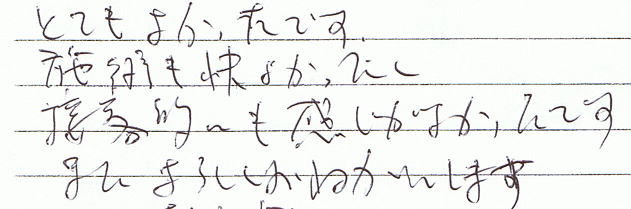 とてもよかったです
施術も快よかったし
接客的にも感じがよかったです
またよろしくおねがいします